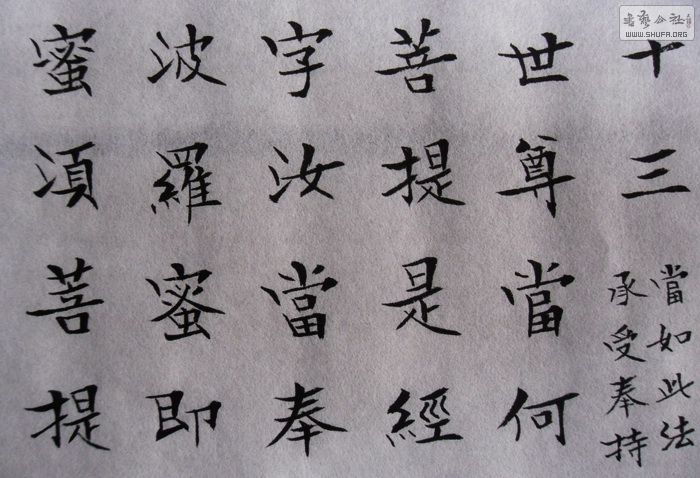 十三
當如此法
承受奉持
世尊當何
菩提是經
字汝當奉
波羅蜜即
蜜須菩提
書藝公社
WWW.SHUFA.ORG